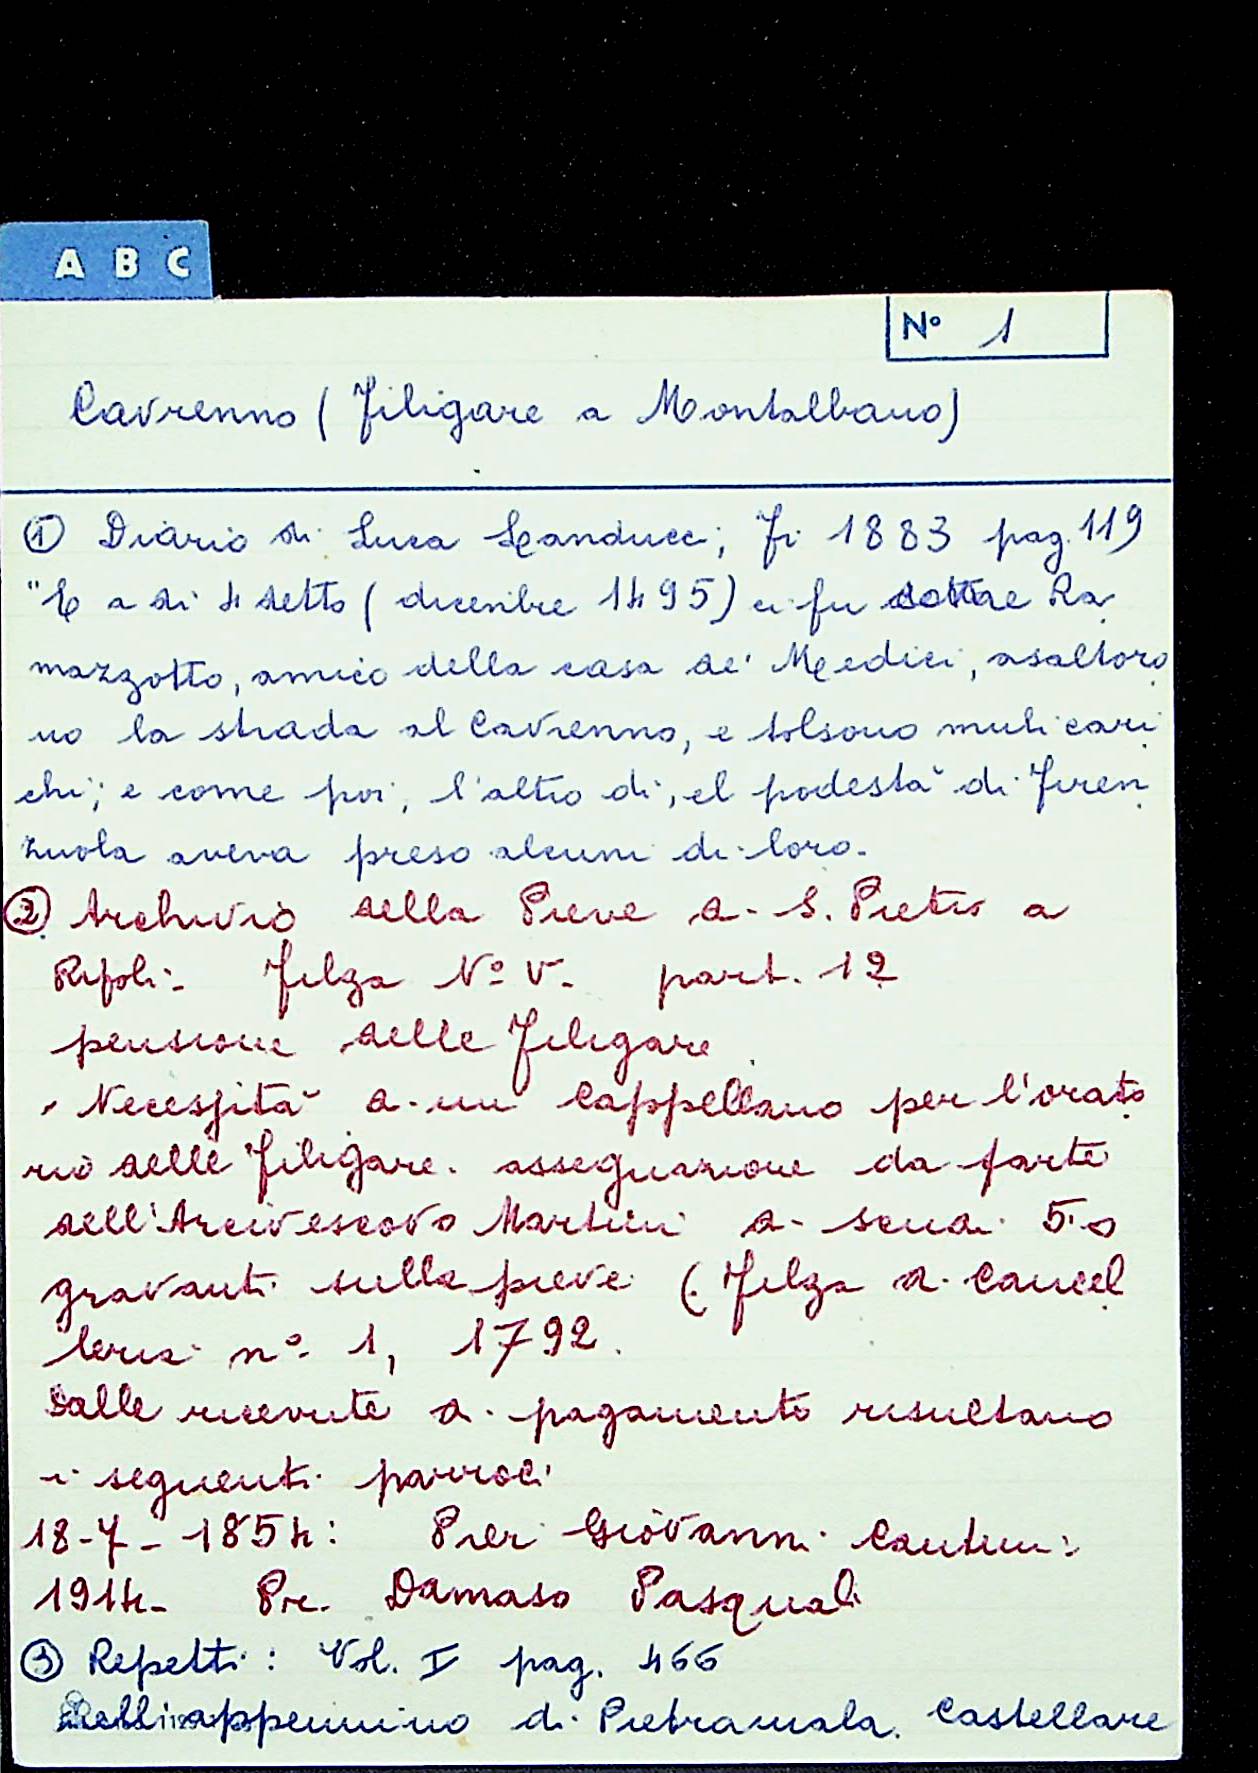 A B C
N° 1
Cavrenno (Filigare a Montalbano)
① Diario di Luca Landucci; Fi 1883 pag. 119
"E a di 4 detto (dicembre 1495) ci fu come Ra
mazzotto, amico della casa de' Medici, asaltoro
no la strada al Cavrenno, e tolsono muli cari
chi; e come poi, l'altro di, el podestà di Firen
zuola aveva preso alcuni di loro.
② Archivio della Pieve di S. Pietro a
Ripoli: Filza N° V. part. 12
pensione delle Filigare
Necessità di un cappellano per l'orato
rio delle Filigare. assegnazione da parte
dell'Arcivescovo Martini di scudi 50
gravanti sulla pieve (Filza di Cancel
leria n° 1, 1792.
Dalle ricevute di pagamento risultano
i seguenti parroci
18-7-1854: Pier Giovanni Cantini:
1914- Pr. Damaso Pasquali
③ Repetti: Vol. I pag. 466
Nell'appennino di Pietramala. Castellare